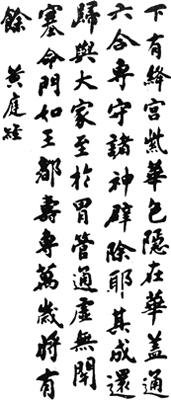 下有絳宮紫華色隱在華蓋通
六合專守諸神辟除耶其成還
歸與大家至於胃管通虛無閉
塞命門如王都壽專萬歲將有
餘 黃庭經